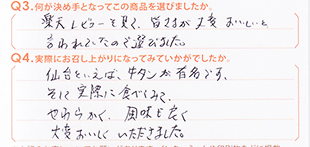 Q3.何が決め手となってこの商品を選びましたか。
楽天レビューを見て、皆さまが大変おいしいと
言われていたので選びました。
Q4.実際にお召し上がりになってみていかがでしたか。
仙台といえば、牛タンが有名です。
そして実際に食べてみて、
やわらかく、風味も良く
大変おいしくいただきました。